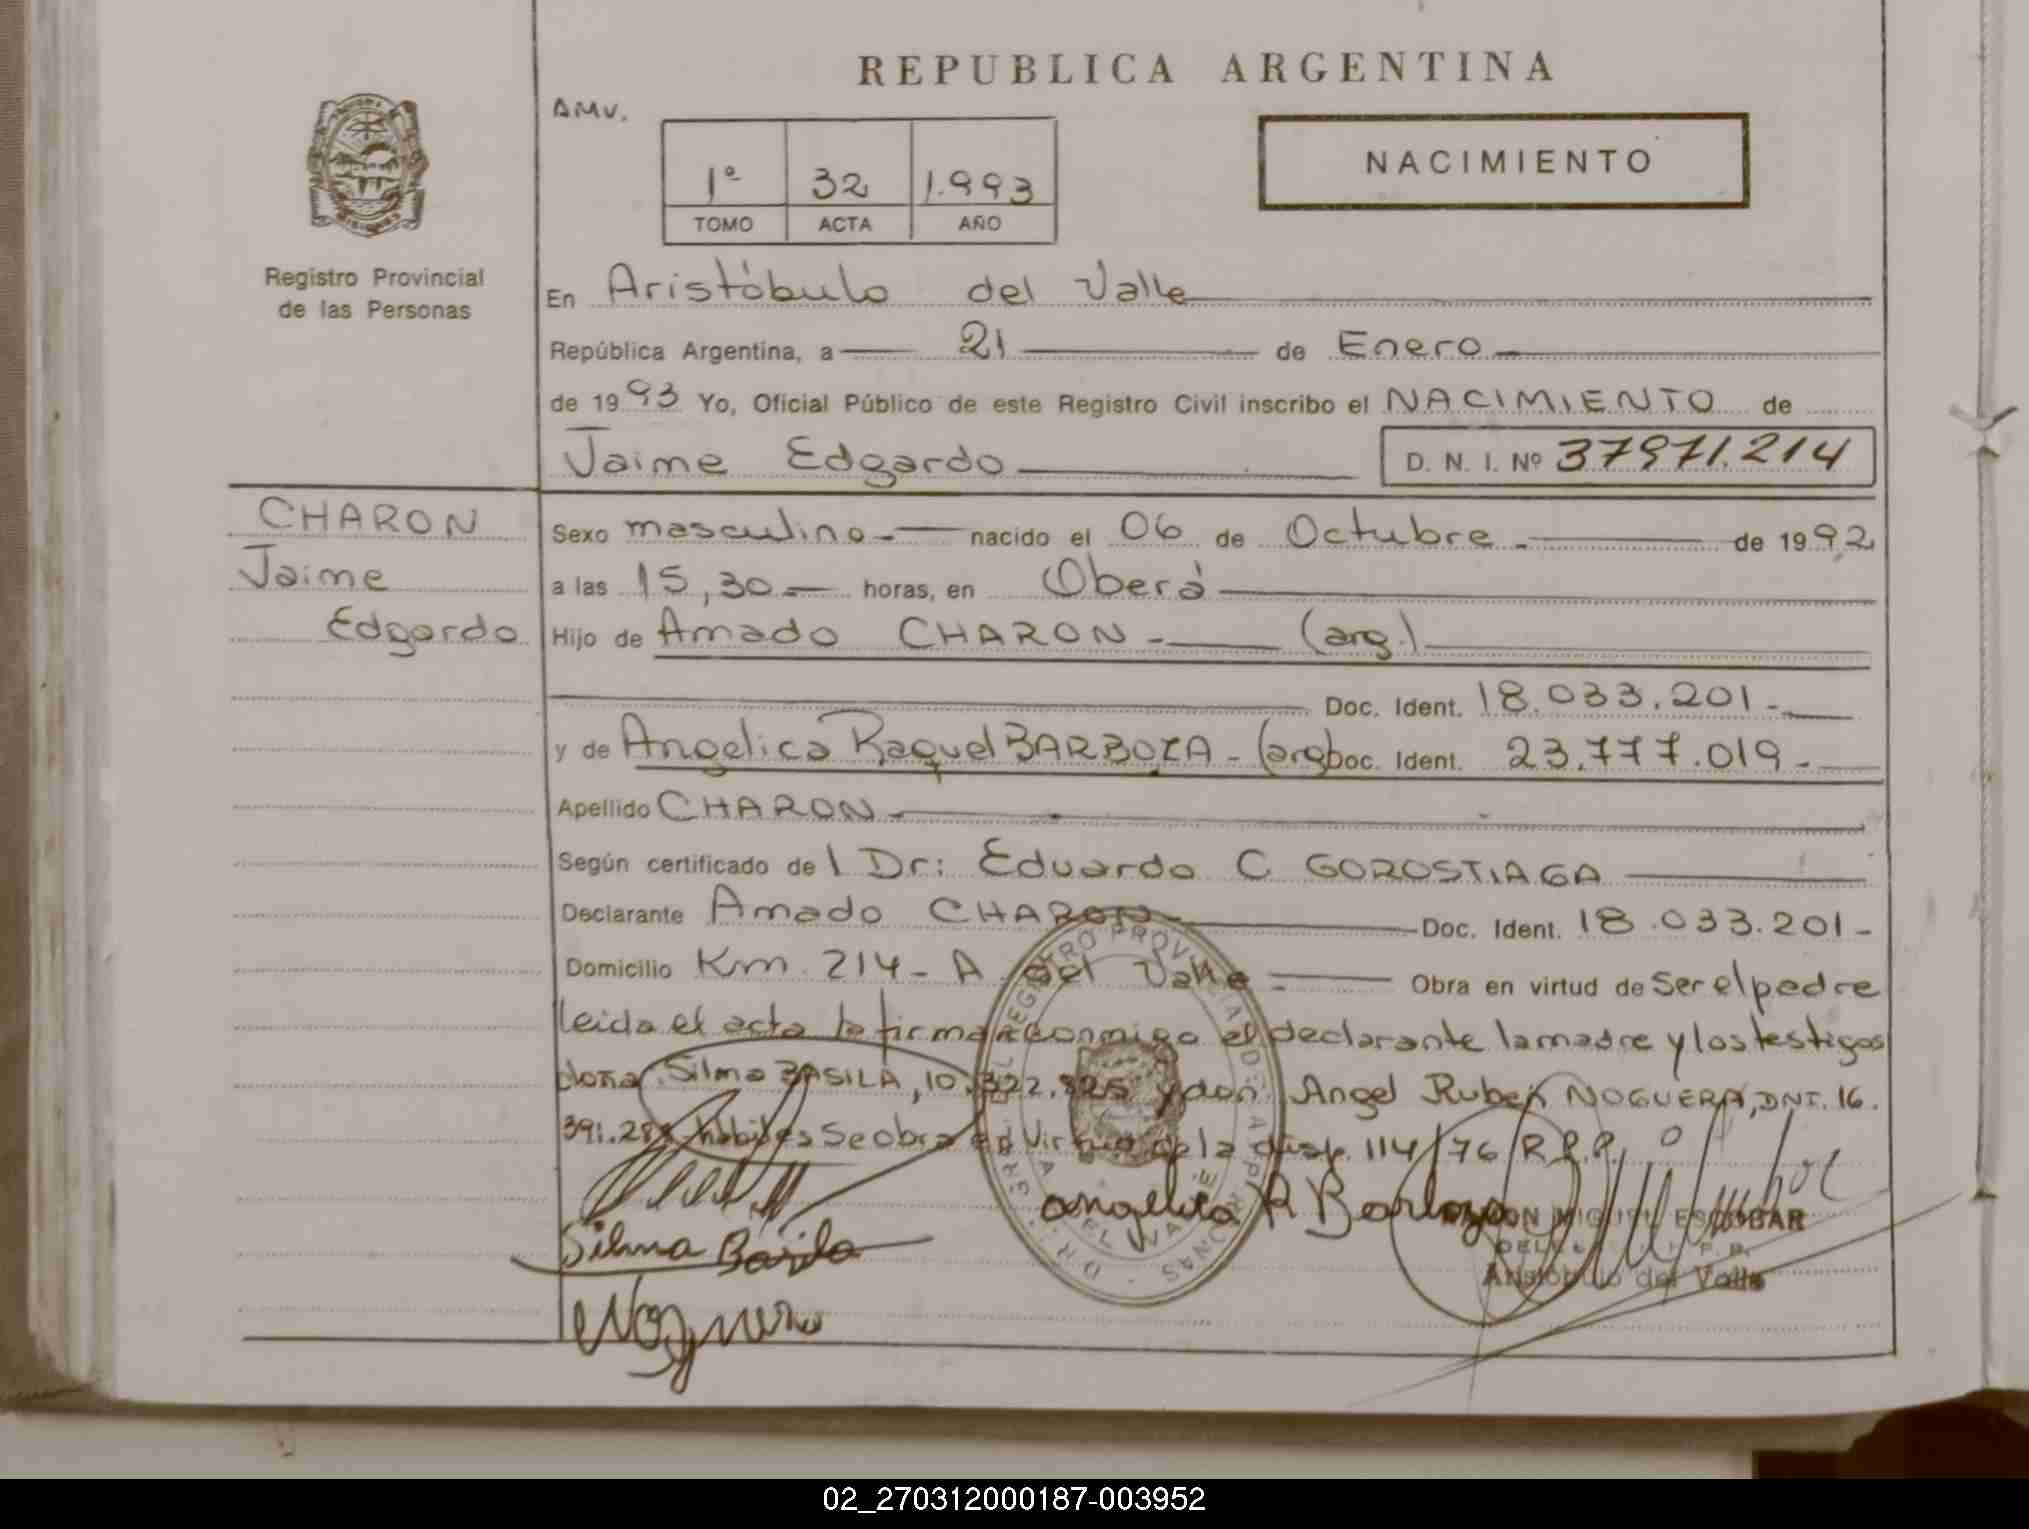 REPUBLICA ARGENTINA
AMV.
1º 32 1.993
TOMO ACTA AÑO
NACIMIENTO
Registro Provincial
de las Personas
En Aristóbulo del Valle
República Argentina, a 21 de Enero
de 1993 Yo, Oficial Público de este Registro Civil inscribo el NACIMIENTO de
Jaime Edgardo D. N. I. Nº 37971.214
CHARON
Jaime
Edgardo
Sexo masculino nacido el 06 de Octubre de 1992
a las 15,30 horas, en Oberá
Hijo de Amado CHARON (arg.)
Doc. Ident. 18.033.201
y de Angelica Raquel BARBOZA (arg) Doc. Ident. 23.777.019
Apellido CHARON
Según certificado del Dr: Eduardo C GOROSTIAGA
Declarante Amado CHARON Doc. Ident. 18.033.201
Domicilio Km. 214 - A. del Valle Obra en virtud de ser el padre
leida el acta la firman conmigo el declarante la madre y los testigos
doña Silma BASILA, 10.322.825 y don Angel Ruben NOGUERA, DNI. 16.
391.28 habiles Se obra en virtud de la disp. 114/76 R.P.P.
Angelica R Barboza
Silma Basila
Noguera
RAMON MIGUEL ESCOBAR
Aristóbulo del Valle
02_270312000187-003952